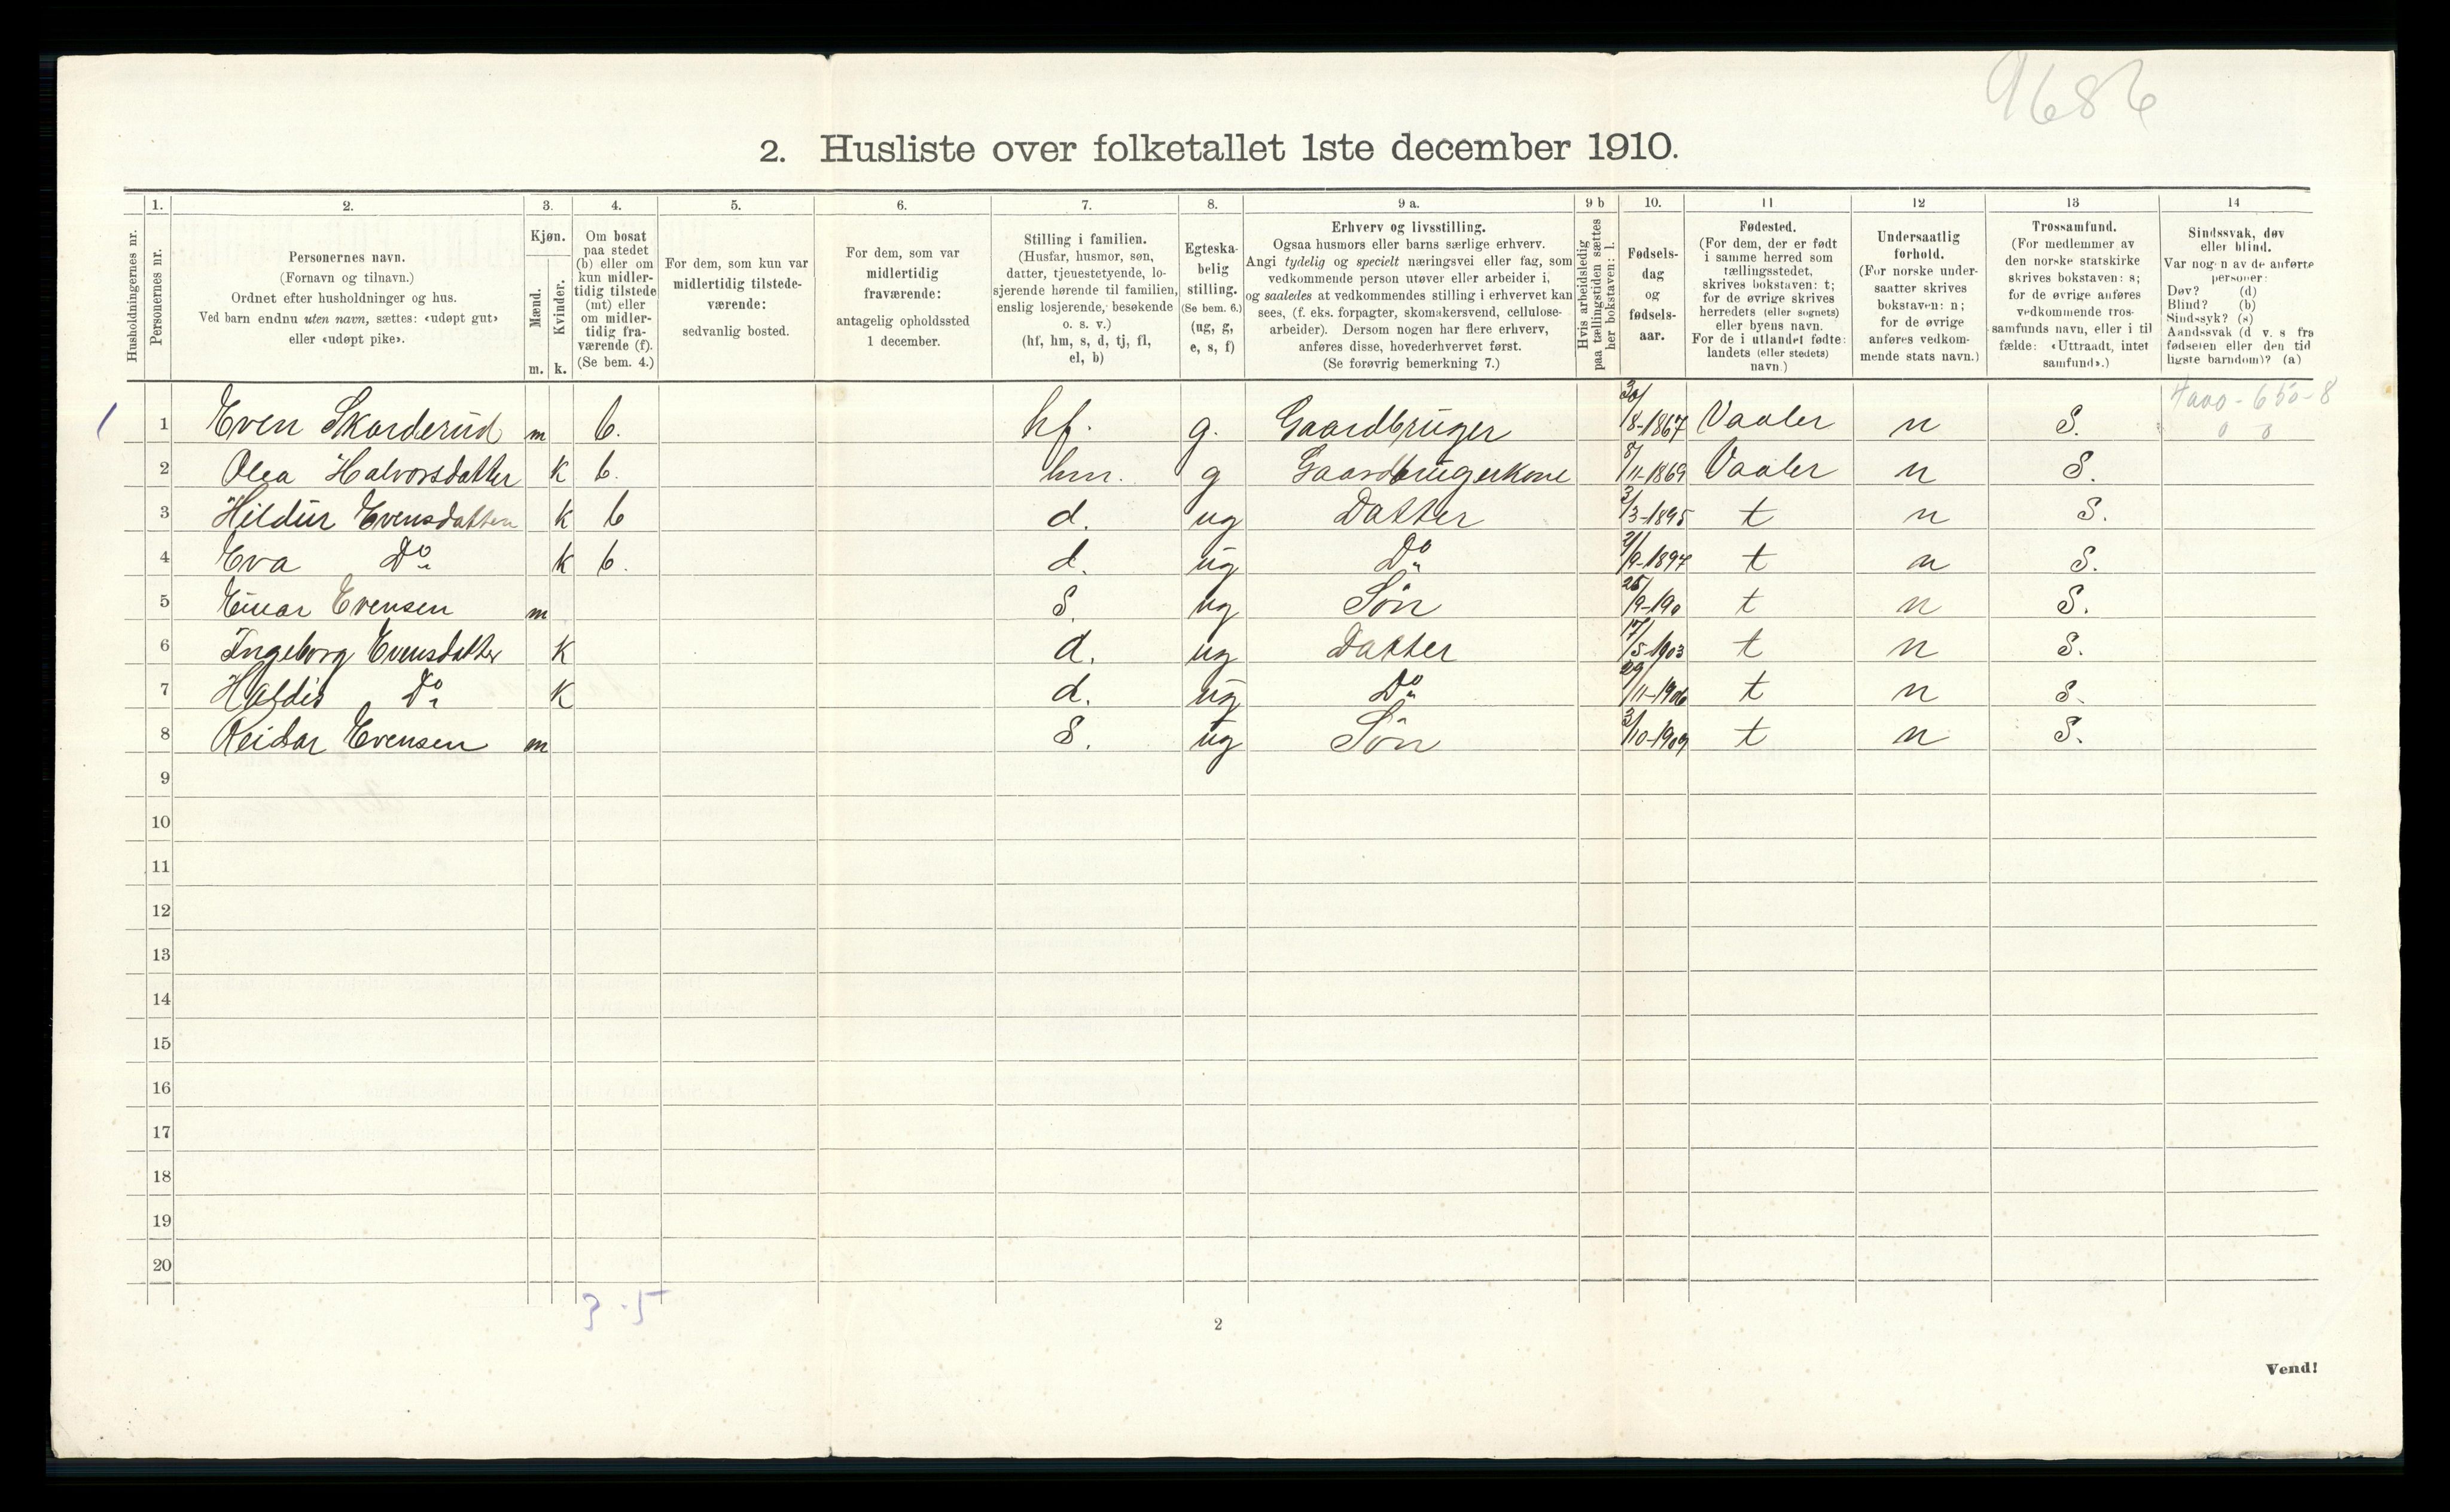 9686
2. Husliste over folketallet 1ste december 1910.
Husholdningernes nr.
1. 2. 3. 4. 5. 6. 7. 8. 9 a. 9 b 10. 11 12 13 14
Personernes nr.
Personernes navn.
(Fornavn og tilnavn.)
Ordnet efter husholdninger og hus.
Ved barn endnu uten navn, sættes: «udøpt gut»
eller «udøpt pike».
Kjøn.
Mænd.
Kvinder.
m. k.
Om bosat
paa stedet
(b) eller om
kun midler-
tidig tilstede
(mt) eller
om midler-
tidig fra-
værende (f).
(Se bem. 4.)
For dem, som kun var
midlertidig tilstede-
værende:
sedvanlig bosted.
For dem, som var
midlertidig
fraværende:
antagelig opholdssted
1 december.
Stilling i familien.
(Husfar, husmor, søn,
datter, tjenestetyende, lo-
sjerende hørende til familien,
enslig losjerende, besøkende
o. s. v.)
(hf, hm, s, d, tj, fl,
el, b)
Egteska-
belig
stilling.
(Se bem. 6.)
(ug, g,
e, s, f)
Erhverv og livsstilling.
Ogsaa husmors eller barns særlige erhverv.
Angi tydelig og specielt næringsvei eller fag, som
vedkommende person utøver eller arbeider i,
og saaledes at vedkommendes stilling i erhvervet kan
sees, (f. eks. forpagter, skomakersvend, cellulose-
arbeider). Dersom nogen har flere erhverv,
anføres disse, hovederhvervet først.
(Se forøvrig bemerkning 7.)
Hvis arbeidsledig
paa tællingstiden sættes
her bokstaven: l.
Fødsels-
dag
og
fødsels-
aar.
Fødested.
(For dem, der er født
i samme herred som
tællingsstedet,
skrives bokstaven: t;
for de øvrige skrives
herredets (eller sognets)
eller byens navn.
For de i utlandet fødte:
landets (eller stedets)
navn.)
Undersaatlig
forhold.
(For norske under-
saatter skrives
bokstaven: n;
for de øvrige
anføres vedkom-
mende stats navn.)
Trossamfund.
(For medlemmer av
den norske statskirke
skrives bokstaven: s;
for de øvrige anføres
vedkommende tros-
samfunds navn, eller i til
fælde: «Uttraadt, intet
samfund».)
Sindssvak, døv
eller blind.
Var nogen av de anførte
personer:
Døv? (d)
Blind? (b)
Sindssyk? (s)
Aandssvak (d. v. s. fra
fødselen eller den tid
ligste barndom)? (a)
1 Even Skarderud m b. hf. g. Gaardbruger 30/8-1867 Vaaler n S.
2 Olea Halvorsdatter k b. hm. g Gaardbrugerkone 8/11-1869 Vaaler n S.
3 Hildur Evensdatter k b d. ug Datter 3/3-1895 t n S.
4 Eva Do k b. d. ug Do /9-1897 t n S.
5 Einar Evensen m S. ug Søn 25/9-190 t n S.
6 Ingeborg Evensdatter k d. ug Datter 17/5-1903 t n S.
7 Haldis Do k d. ug Do 29/11-1906 t n S.
8 Reidar Evensen m S. ug Søn 3/10-1909 t n S.
9
10
11
12
13
14
15
16
17
18
19
20
3 - 5
2
Vend!